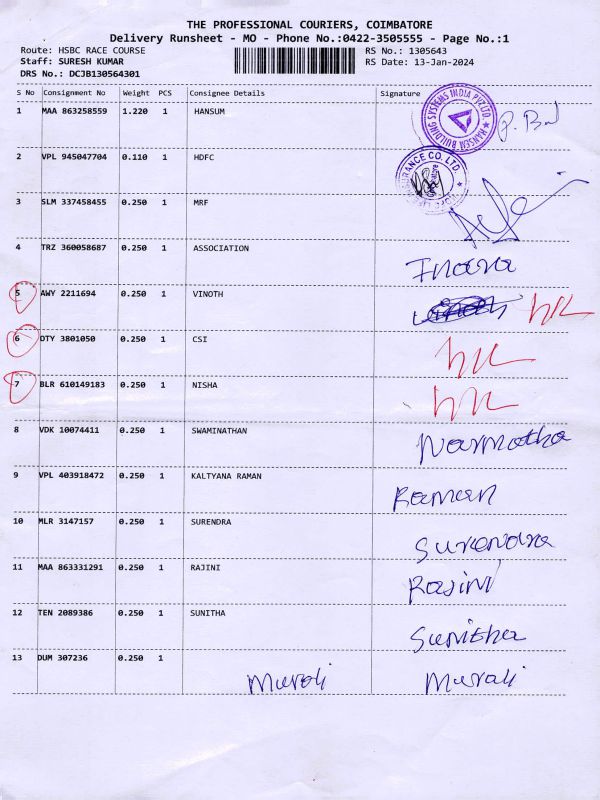 THE PROFESSIONAL COURIERS, COIMBATORE
Delivery Runsheet - MO - Phone No.:0422-3505555 - Page No.:1
Route: HSBC RACE COURSE RS No.: 1305643
Staff: SURESH KUMAR RS Date: 13-Jan-2024
DRS No.: DCJB130564301
S No Consignment No Weight PCS Consignee Details Signature
1 MAA 863258559 1.220 1 HANSUM
HANSEN BUILDING SYSTEMS INDIA PVT.LTD.
2 VPL 945047704 0.110 1 HDFC
INSURANCE CO. LTD.
3 SLM 337458455 0.250 1 MRF
4 TRZ 360058687 0.250 1 ASSOCIATION
5 AWY 2211694 0.250 1 VINOTH
6 DTY 3801050 0.250 1 CSI
7 BLR 610149183 0.250 1 NISHA
8 VDK 10074411 0.250 1 SWAMINATHAN Narmatha
9 VPL 403918472 0.250 1 KALTYANA RAMAN Raman
10 MLR 3147157 0.250 1 SURENDRA Surendra
11 MAA 863331291 0.250 1 RAJINI Rajini
12 TEN 2089386 0.250 1 SUNITHA Sunitha
13 DUM 307236 0.250 1 Murali Murali